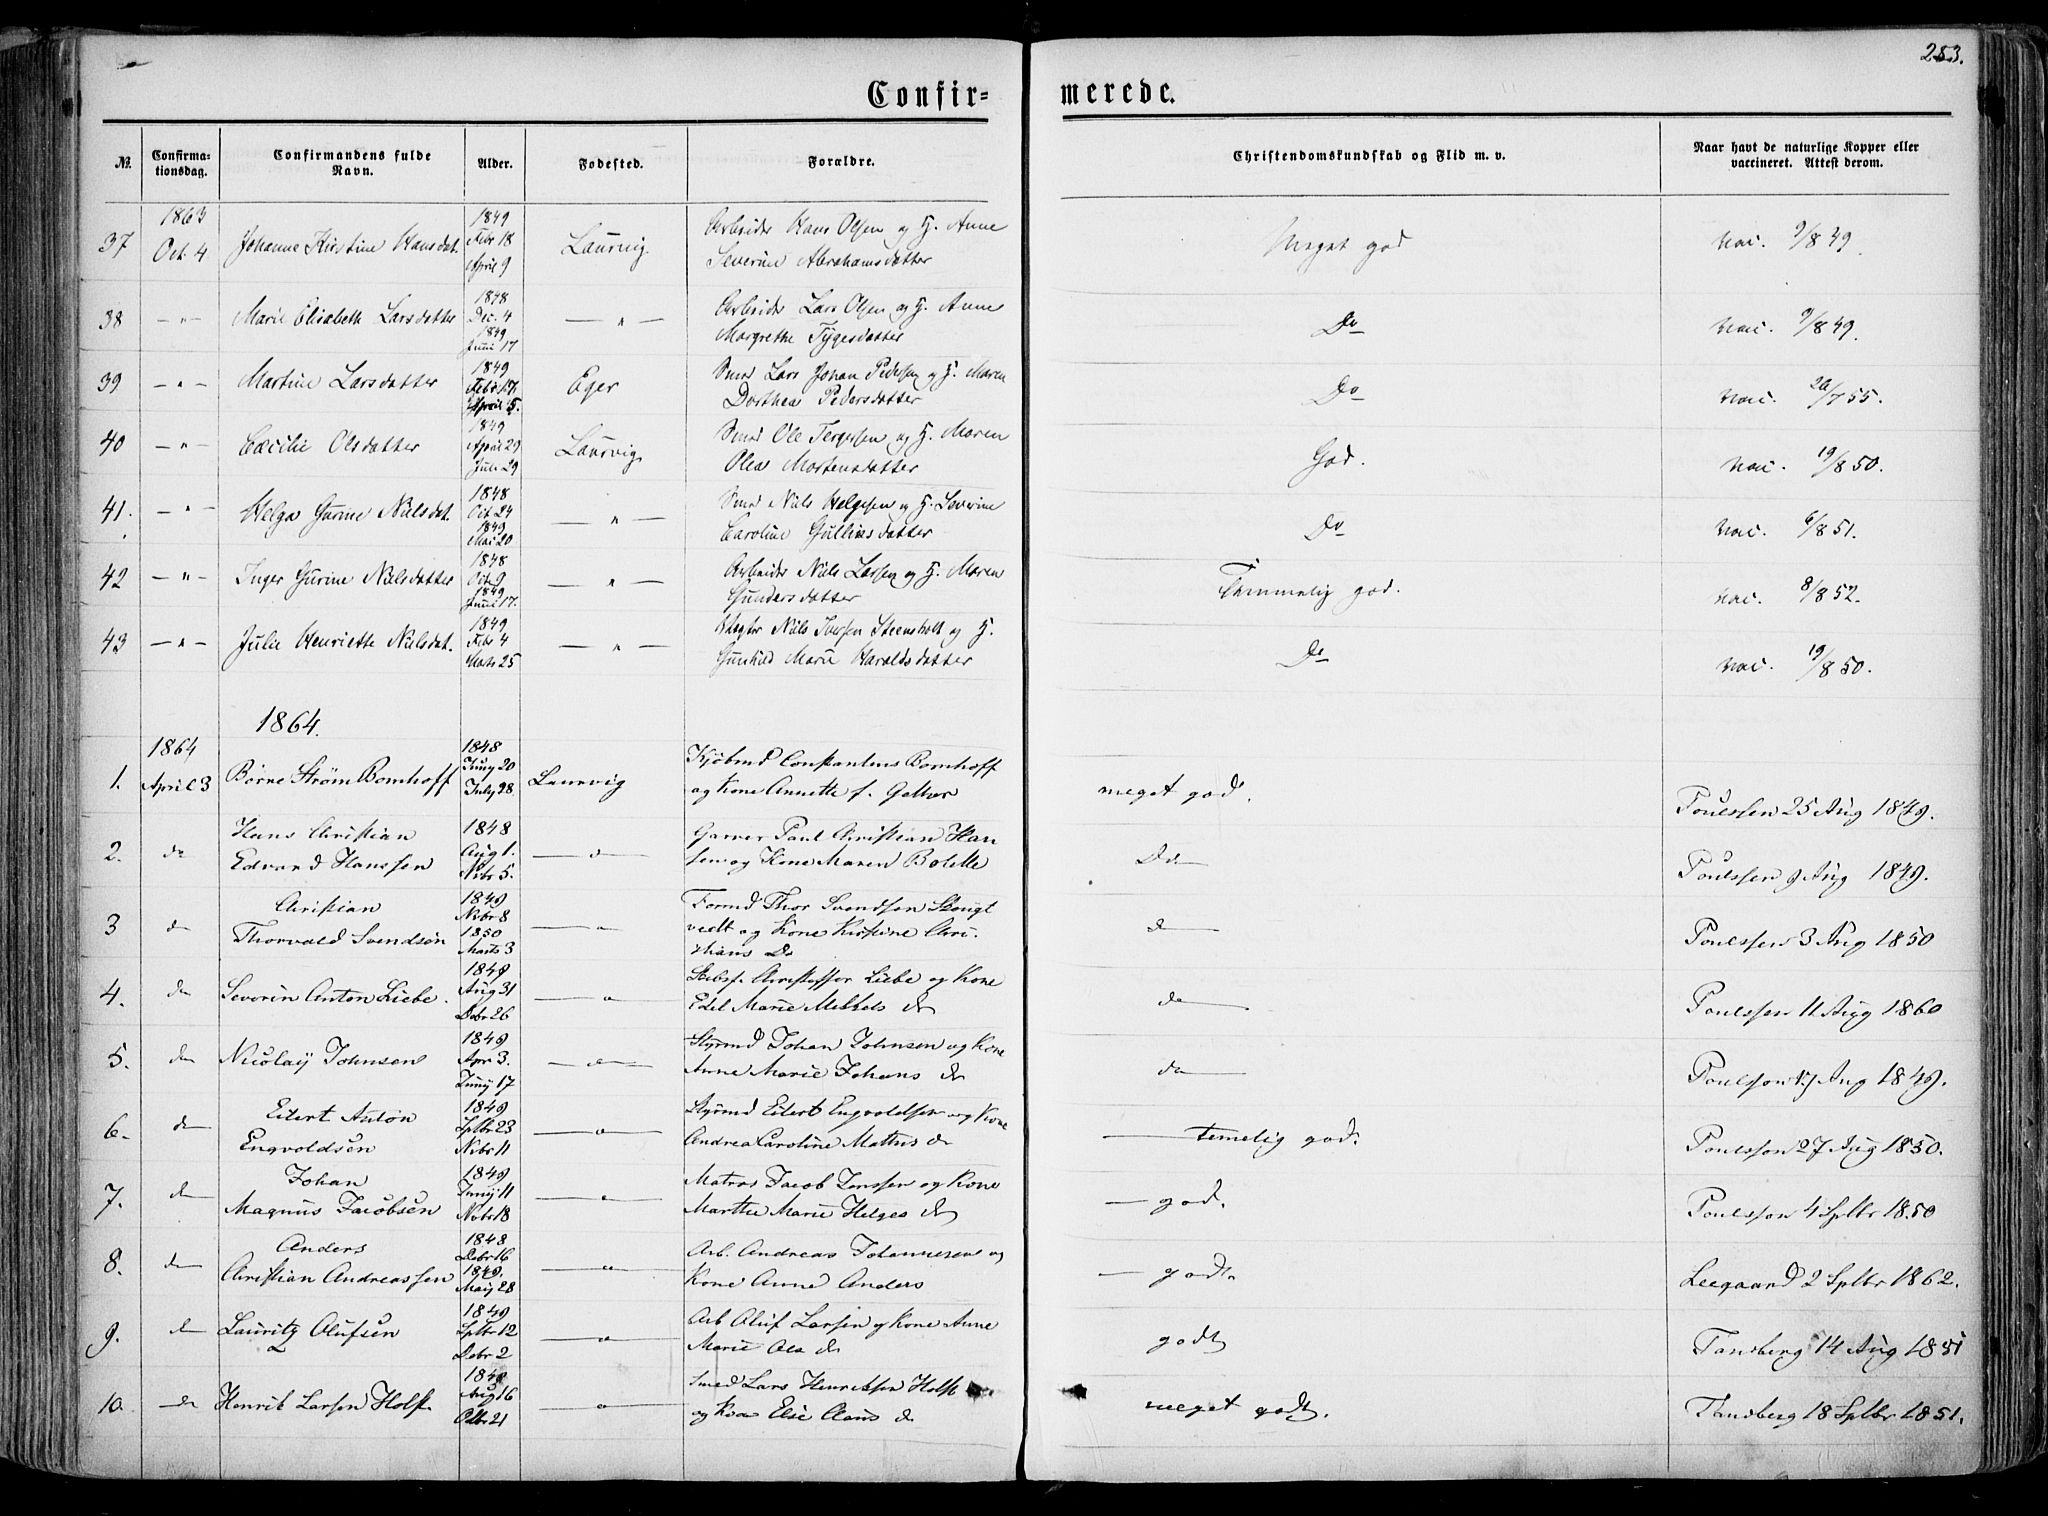 283.
Confir= merede.
No. Confirma- Confirmandens fulde Alder. Fodested. Forældre. Christendomskundskab og Flid m. v. Naar havt de naturlige Kopper eller
tionsdag. Navn. vaccineret. Attest derom.
1863 1849 Arbeider Hans Olsen og H. Anne
37 Oct. 4 Johanne Kirstine Hansdat. Febr 18 Laurvig Meget god Vac. 9/8 49.
April 9 Severine Abrahamsdatter
1848 Arbeider Lars Olsen og H. Anne
38 — " — Marie Elisabeth Larsdatter Dec. 4 — " — Do Vac. 9/8 49.
1849 Margrethe Tygesdatter
Juni 17
39 — " — Martine Larsdatter 1849 Eger Smed Lars Johan Pedersen og H. Maren Do Vac. 20/7 55.
Febr 17. Dorthea Pedersdatter
April 5.
40 — " — Cæcilie Olsdatter 1849 Laurvig Smed Ole Tergesen og H. Maren God. Vac. 19/8 50.
April 29 Olea Mortensdatter
Juli 29
41. — " — Helga Gurine Nielsdat. 1848 — " — Smed Niels Helgesen og H. Severine Do Vac. 6/8 51.
Oct 24 Caroline Gulliksdatter
1849
Mai 20
42 — " — Inger Gurine Nielsdatter 1848 — " — Arbeider Niels Larsen og H. Maren Temmelig god. Vac. 8/8 52.
Oct 9 Gundersdatter
1849
Juni 17.
43 — " — Julie Henriette Nielsdat. 1849 — " — Niels Iversen Steensholt og H. Do Vac. 19/8 50.
Febr 4 Gunhild Marie Haraldsdatter
Marts 25
1864.
1864 1848 Kjøbmd Constantius Bomhoff
1. April 3 Børre Strøm Bomhoff Juny 20 Laurvig meget god. Poulssen 25 Aug 1849.
July 28 og Kone Annette f.
2. do Hans Christian 1848 — " — Garver Paul Christian Han Do Poulssen 9 Aug 1849.
Edvard Hanssen Aug 1. sen og Kone Maren Bolette
Nvbr 5.
3 do Christian 1849 — " — Formd Thor Svendsen do Poulssen 3 Aug 1850
Thorvald Svendsøn Nvbr 8 vedt og Kone Kirstine Chri-
1850 stians Dr
Marts 3
4. do Severin Anton Liebe. 1849 — " — Skibsf. Christoffer Liebe og Kone do Poulssen 11 Aug 1860
Aug 31 Edel Marie Mikkels dr
Debr 26
5. do Nicolay Johnsen 1849 — " — Styrmd Johan Johnsen og Kone do Poulsson Aug 1849.
Apr 3. Anne Marie Johans dr
Juny 17
6. do Eilert Anton 1849 — " — Styrmd Eilert Engvoldsen og Kone — temelig god. Poulsson 27 Aug 1850.
Engvoldsen Sptbr 23 Andrea Caroline Mathis dr
Nvbr 11
7. do Johan 1849 — " — Matros Jacob Jenssen og Kone — god. Poulsson 4 Sptbr 1850
Magnus Jacobsen Juny 11 Marthe Marie Helges dr
Nvbr 18
8. do Anders 1848 — " — Arb. Andreas Johannesen og — godt. Leegaard 2 Sptbr 1862.
Christian Andreassen Debr 16 Kone Anne Anders
1849.
May 28
9. do Lauritz Olufsen 1849 — " — Arb Oluf Larsen og Kone Anne godt Tansberg 14 Aug 1851
Sptbr 12 Marie Ols dr
Debr 2
10. do Henrik Larsen Holst Aug 16 — " — Smed Lars Henriksen Holst meget godt. Tansberg 18 Sptbr 1851.
Octbr 21 og Kone Else Claus dr